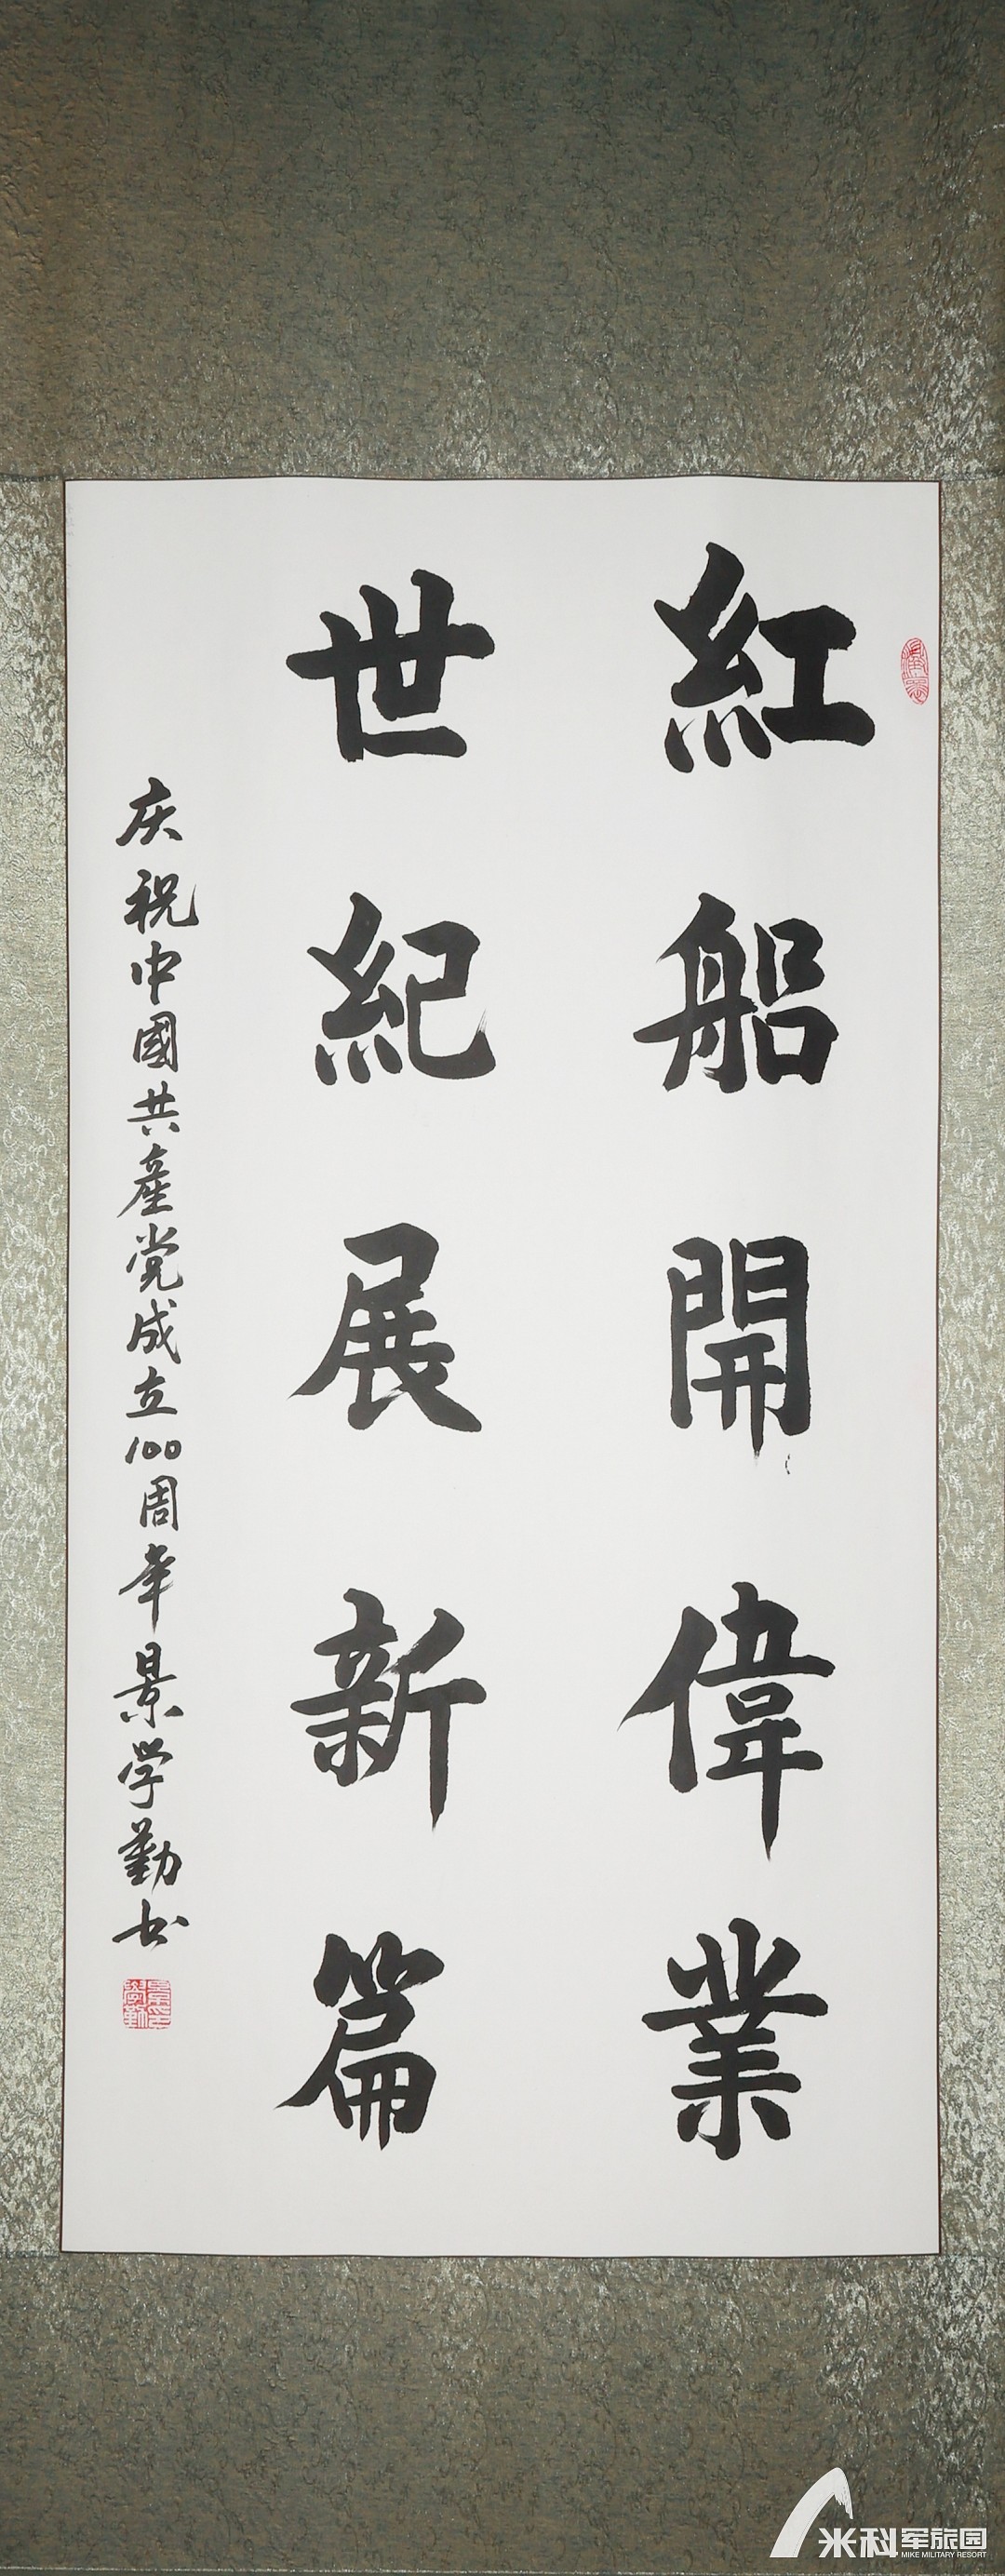 紅船開偉業
世紀展新篇
庆祝中國共產党成立100周年 景学勤书
米科军旅园
MIKE MILITARY RESORT